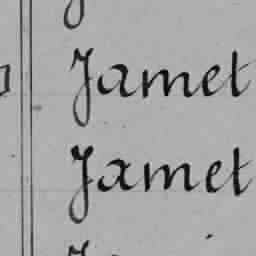 Jamet
Jamet